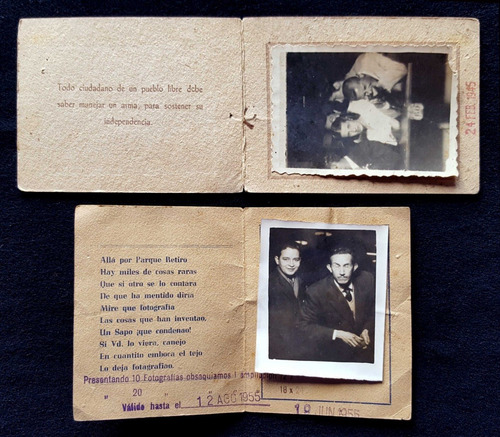 Todo ciudadano de un pueblo libre debe
saber manejar un arma, para sostener su
independencia.
24 FEB. 1945
Allá por Parque Retiro
Hay miles de cosas raras
Que si otro se lo contara
De que ha mentido diría
Mire que fotografía
Las cosas que han inventao,
Un Sapo ¡que condenao!
Si Vd. lo viera, canejo
En cuantito emboca el tejo
Lo deja fotografiao.
Presentando 10 Fotografías obsequiamos 1
" 20 "
Válido hasta el 12 AGO 1955
18 x
JUN 1955